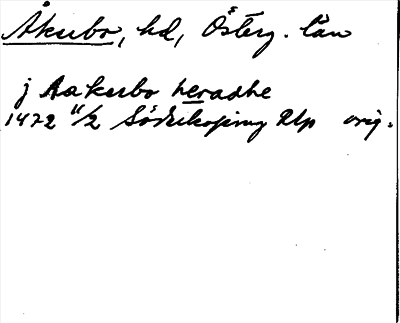 Åkerbo, hd, Österg. län
j Aakerbo heradhe
1472 11/2 Söderköping RAp orig.